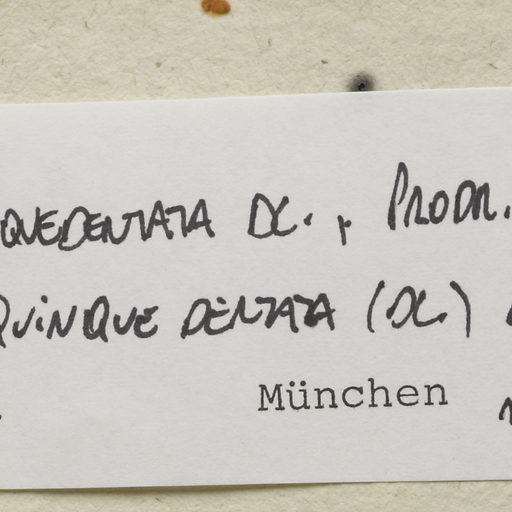 QUEDENTATA DC., PRODR.
QUINQUE DENTATA (DC.)
München